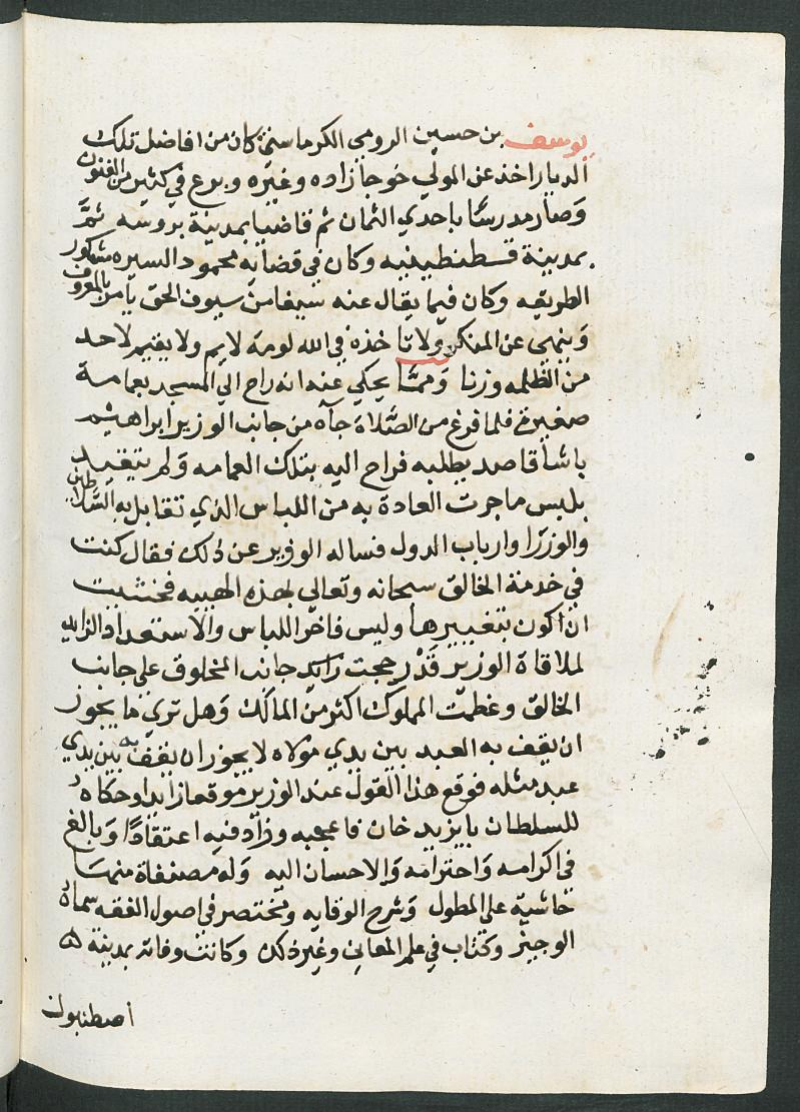 يوسف بن حسين الرومي الكرماستي كان من افاضل تلك
الديار اخذ عن المولي خوجا زاده وغيره وبرع في كثير من الفنون
وصار مدرسًا باحدي الثمان ثم قاضيا بمدينة بروسه ثمَّ
بمدينة قسطنطينيه وكان في قضايه محمود السيره مشكور
الطريقه وكان فيما يقال عنه سيفا من سيوف الحق يامر بالمعروف
وينهي عن المنكر ولا تاخذه في الله لومة لايم ولا يقيم لاحد
من الظلمه وزنا وممّا يحكي عنه انه راح الي المسجد بعمامة
صغيرة فلما فرغ من الصّلاة جآه من جانب الوزير ابراهيم
باشا قاصد يطلبه فراح اليه بتلك العمامه ولم يتقيد
بلبس ما جرت العادة به من اللباس الذي تقابل به السّلاطين
والوزرا وارباب الدول فساله الوزير عن ذلك فقال كنت
في خدمة الخالق سبحانه وتعالي بهذه الهيبه فخشيت
ان اكون بتغييرها وليس فاخر اللباس والاستعداد الزايد
لملاقاة الوزير قدْ رجحت زايد جانب المخلوق علي جانب
الخالق وعظمت المملوك اكثر من المالك وهل تري ما يجوز
ان يقف به العبد بين يدي مولاه لا يجوز ان يقف به بين يدي
عبد مثله فوقع هذا القول عند الوزير موقعا زايدا وحكاه
للسلطان بايزيد خان فاعجبه وزاد فيه اعتقادًا وبالغ
في اكرامه واحترامه والاحسان اليه وله مصنفاة منها
حاشية علي المطول وشرح الوقايه ومختصر في اصول الفقه سماه
الوجيز وكتاب في علم المعاني وغير ذلك وكانت وفاته بمدينة
اصطنبول